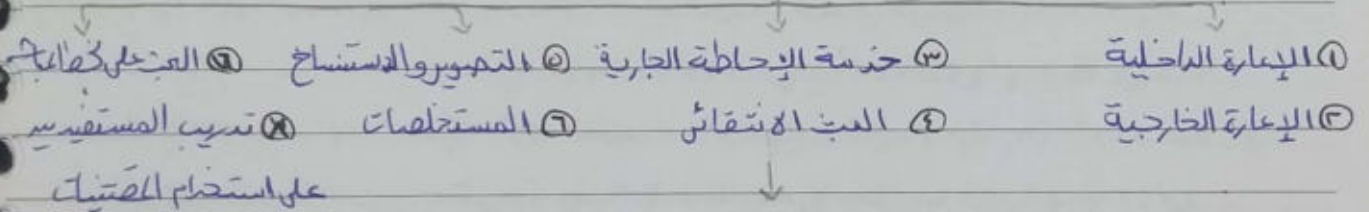 ① الإعارة الداخلية ③ خدمة الإحاطة الجارية ⑤ التصوير والاستنساخ البث على
② الإعارة الخارجية ④ البث الانتقائي ⑥ المستخلصات تدريب المستفيدين
على استخدام المقتنيات